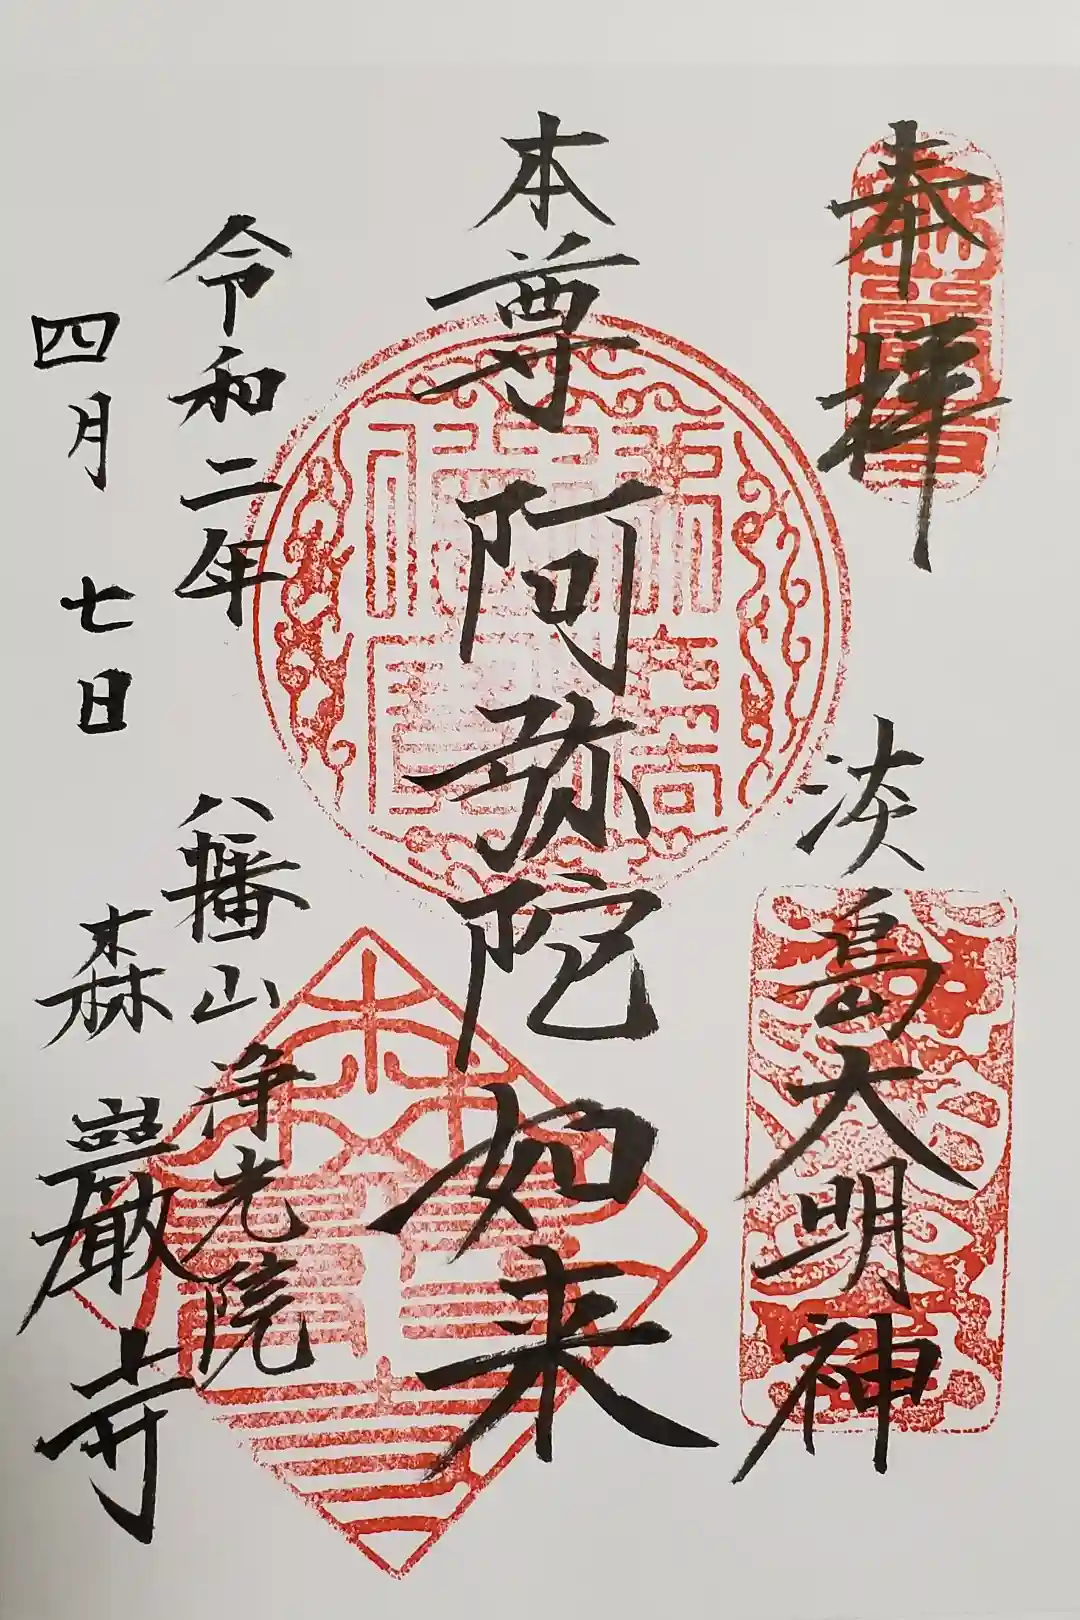 奉拝
淡島大明神
本尊阿弥陀如来
令和二年
四月七日
八幡山浄光院
森巌寺